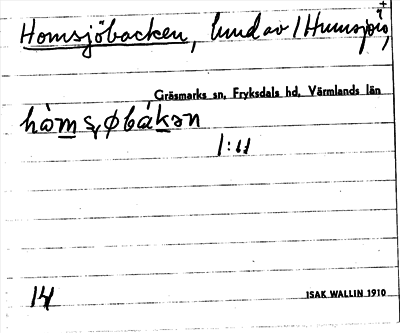 Homsjöbacken, lund av 1 Humsjön,
Gräsmarks sn, Fryksdals hd, Värmlands län
hòmsøbákən
1:11
14
ISAK WALLIN 1910